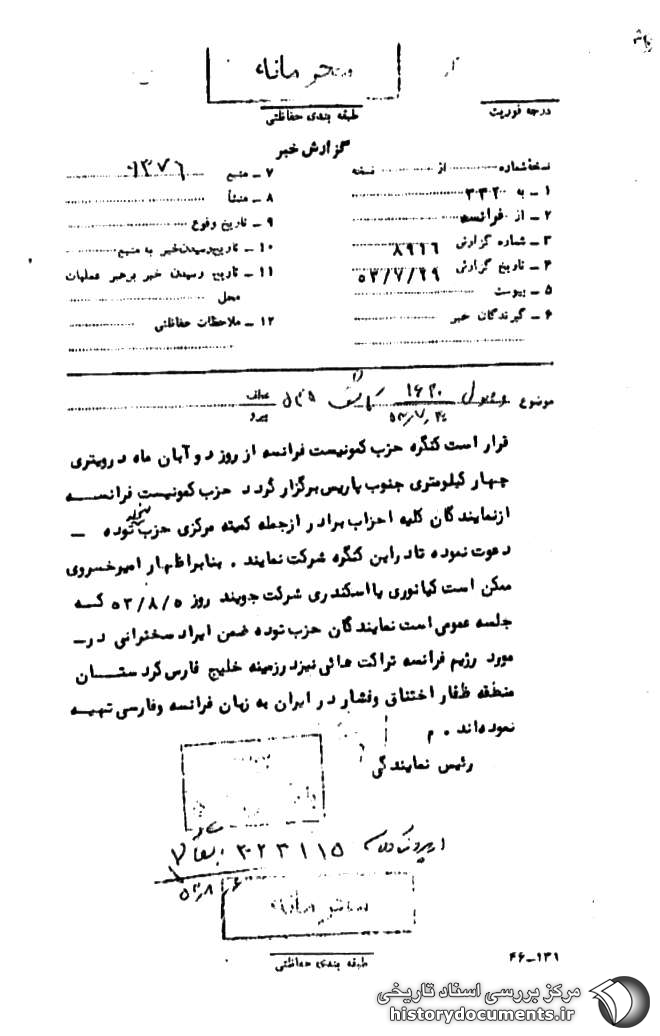 محرمانه
طبقه بندی حفاظتی
درجه فوریت
گزارش خبر
نسخهٔ شماره ........ از ........ نسخه
۱ ـ به ۳۳۲۰
۲ ـ از فرانسه
۳ ـ شماره گزارش ۸۹۱۶
۴ ـ تاریخ گزارش ۵۳/۷/۲۹
۵ ـ پیوست
۶ ـ گیرندگان خبر
۷ ـ منبع ۱۳۷۶
۸ ـ منشأ
۹ ـ تاریخ وقوع
۱۰ ـ تاریخ رسیدن خبر به منبع
۱۱ ـ تاریخ رسیدن خبر برهبر عملیات
محل
۱۲ ـ ملاحظات حفاظتی
موضوع
قرار است کنگره حزب کمونیست فرانسه از روز دو آبان ماه در ویتری
چهار کیلومتری جنوب پاریس برگزار گردد حزب کمونیست فرانسه
از نمایندگان کلیه احزاب برادر از جمله کمیته مرکزی حزب توده ـ
دعوت نموده تا در این کنگره شرکت نمایند . بنابر اظهار امیرخسروی
ممکن است کیانوری یا اسکندری شرکت جویند روز ۵۳/۸/۵ که
جلسه عمومی است نمایندگان حزب توده ضمن ایراد سخنرانی در ـ
مورد رژیم فرانسه تراکت هائی نیز در زمینه خلیج فارس کردستان
منطقه ظفار اختناق و فشار در ایران به زبان فرانسه و فارسی تهیه
نموده‌اند . م
رئیس نمایندگی
محرمانه
طبقه بندی حفاظتی
۴۶-۱۳۱
مرکز بررسی اسناد تاریخی
historydocuments.ir